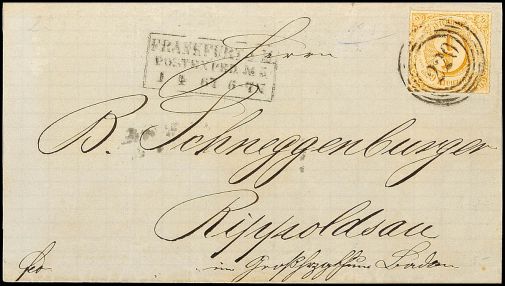 FRANKFURT A. M.
POSTEXPED. No 2
1 4 67 6-7N
220
Herrn
B. Schneggenburger
Rippoldsau
fco. im Großherzogthum Baden